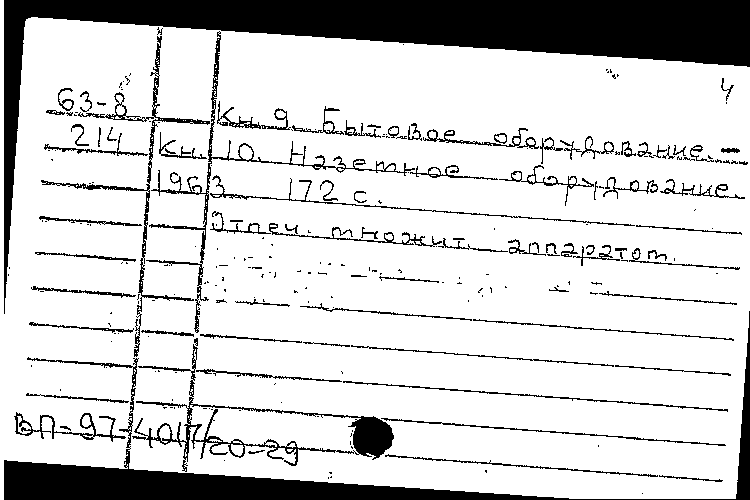 4
63-8 Кн. 9. Бытовое оборудование. -
214 Кн. 10. Наземное оборудование.
1963 172 с.
Отпеч. множит. аппаратом.
ВП-97-4017/20-29